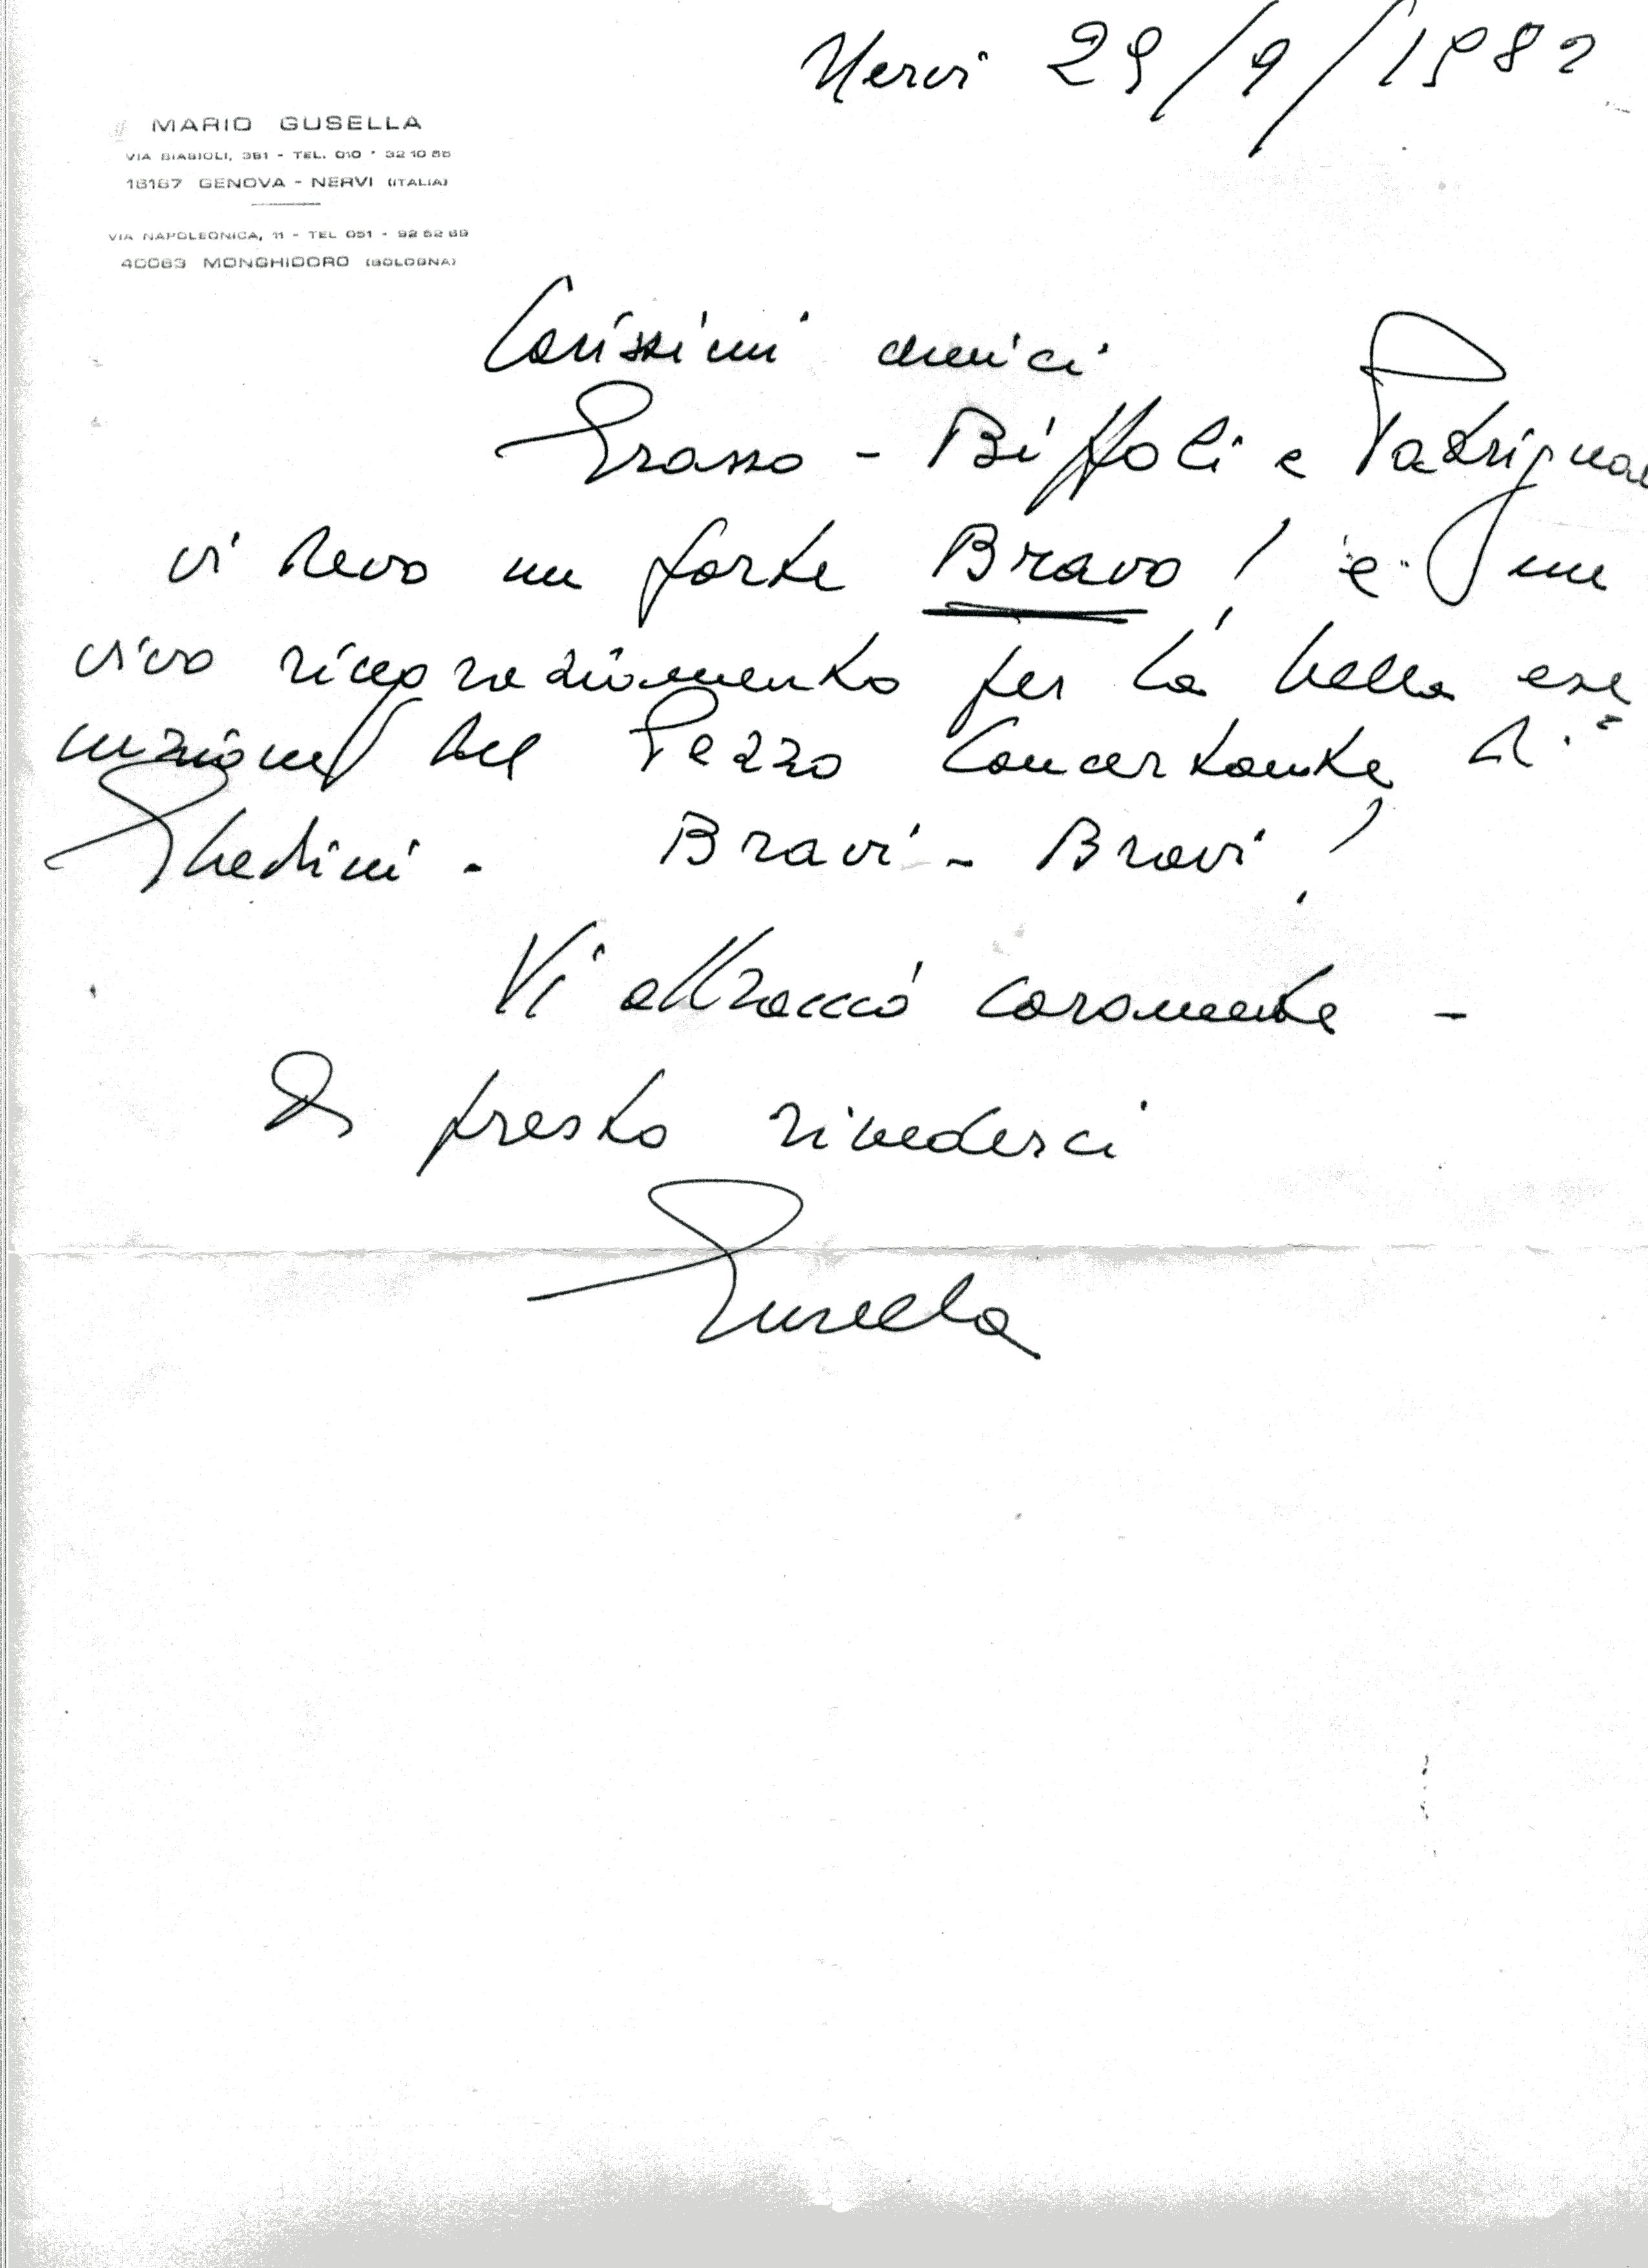 Nervi 29/9/1982
MARIO GUSELLA
VIA BIAGIOLI, 361 - TEL. 010 - 32 10 55
16167 GENOVA - NERVI (ITALIA)
VIA NAPOLEONICA, 11 - TEL 051 - 92 52 69
40063 MONGHIDORO (BOLOGNA)
Carissimi amici
Grasso - Biffoli e Patrignan
vi devo un forte Bravo! e un
vivo ringraziamento per la bella ese=
cuzione del Pezzo Concertante di
Ghedini. Bravi - Bravi!
Vi abbraccio caramente -
A presto rivederci
Gusella